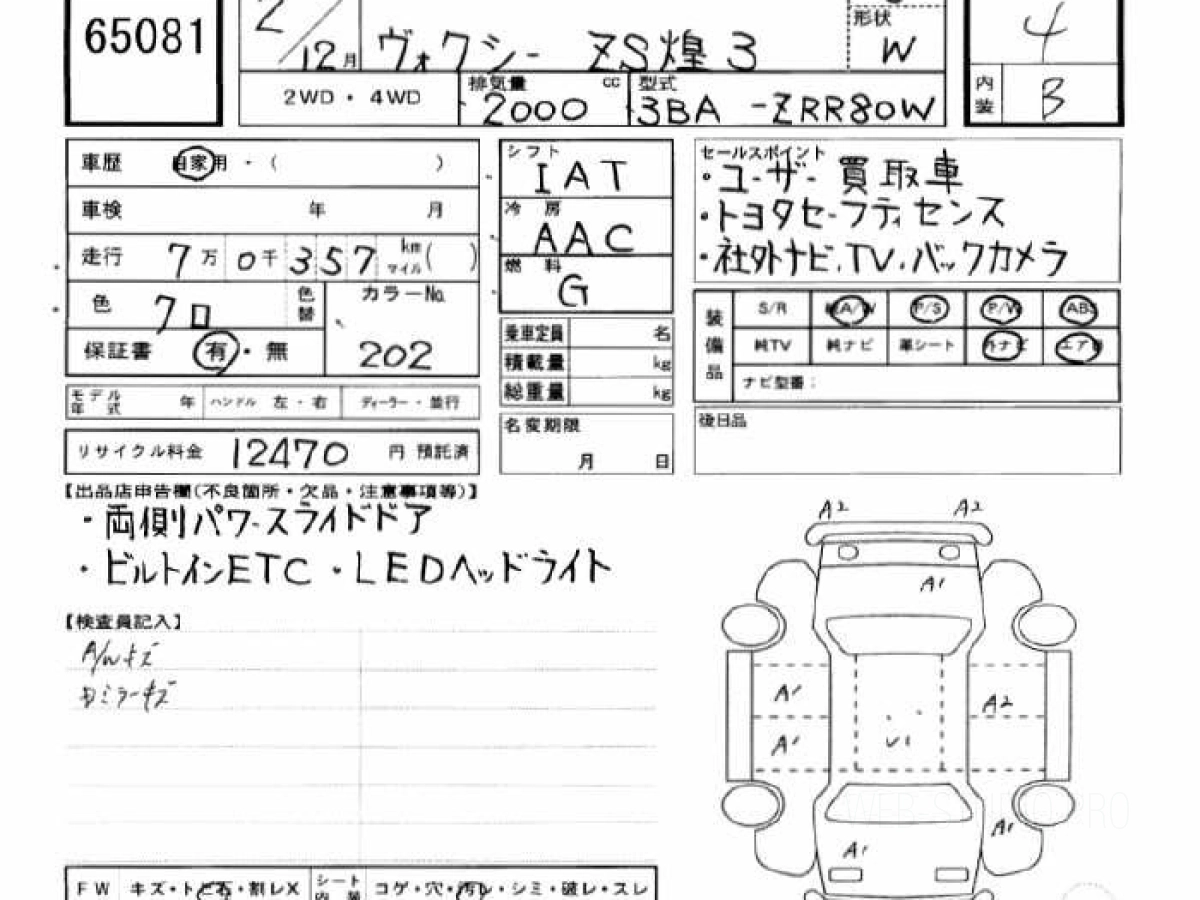 65081
2/12月 ヴォクシー ZS煌3
形状 W
4
2WD・4WD
排気量 cc 2000
型式 3BA-ZRR80W
内装 B
車歴 自家用・( )
車検 年 月
走行 7万0千357 km マイル( )
色 クロ 色替
カラーNo. 202
保証書 有・無
モデル年式 年 ハンドル 左・右 ディーラー・並行
リサイクル料金 12470 円 預託済
シフト IAT
冷房 AAC
燃料 G
乗車定員 名
積載量 kg
総重量 kg
名変期限
月 日
セールスポイント
・ユーザー買取車
・トヨタセーフティセンス
・社外ナビ、TV、バックカメラ
装備品
S/R 純A/W P/S P/W ABS
純TV 純ナビ 革シート 外ナビ エアB
ナビ型番：
後日品
【出品店申告欄(不良箇所・欠品・注意事項等)】
・両側パワースライドドア
・ビルトインETC・LEDヘッドライト
【検査員記入】
A/Wキズ
ミラーキズ
A2 A2
A1
A1 A2
A1 U1
A1
A1
FW キズ・トビ石・割レX シート内装 コゲ・穴・汚レ・シミ・破レ・スレ